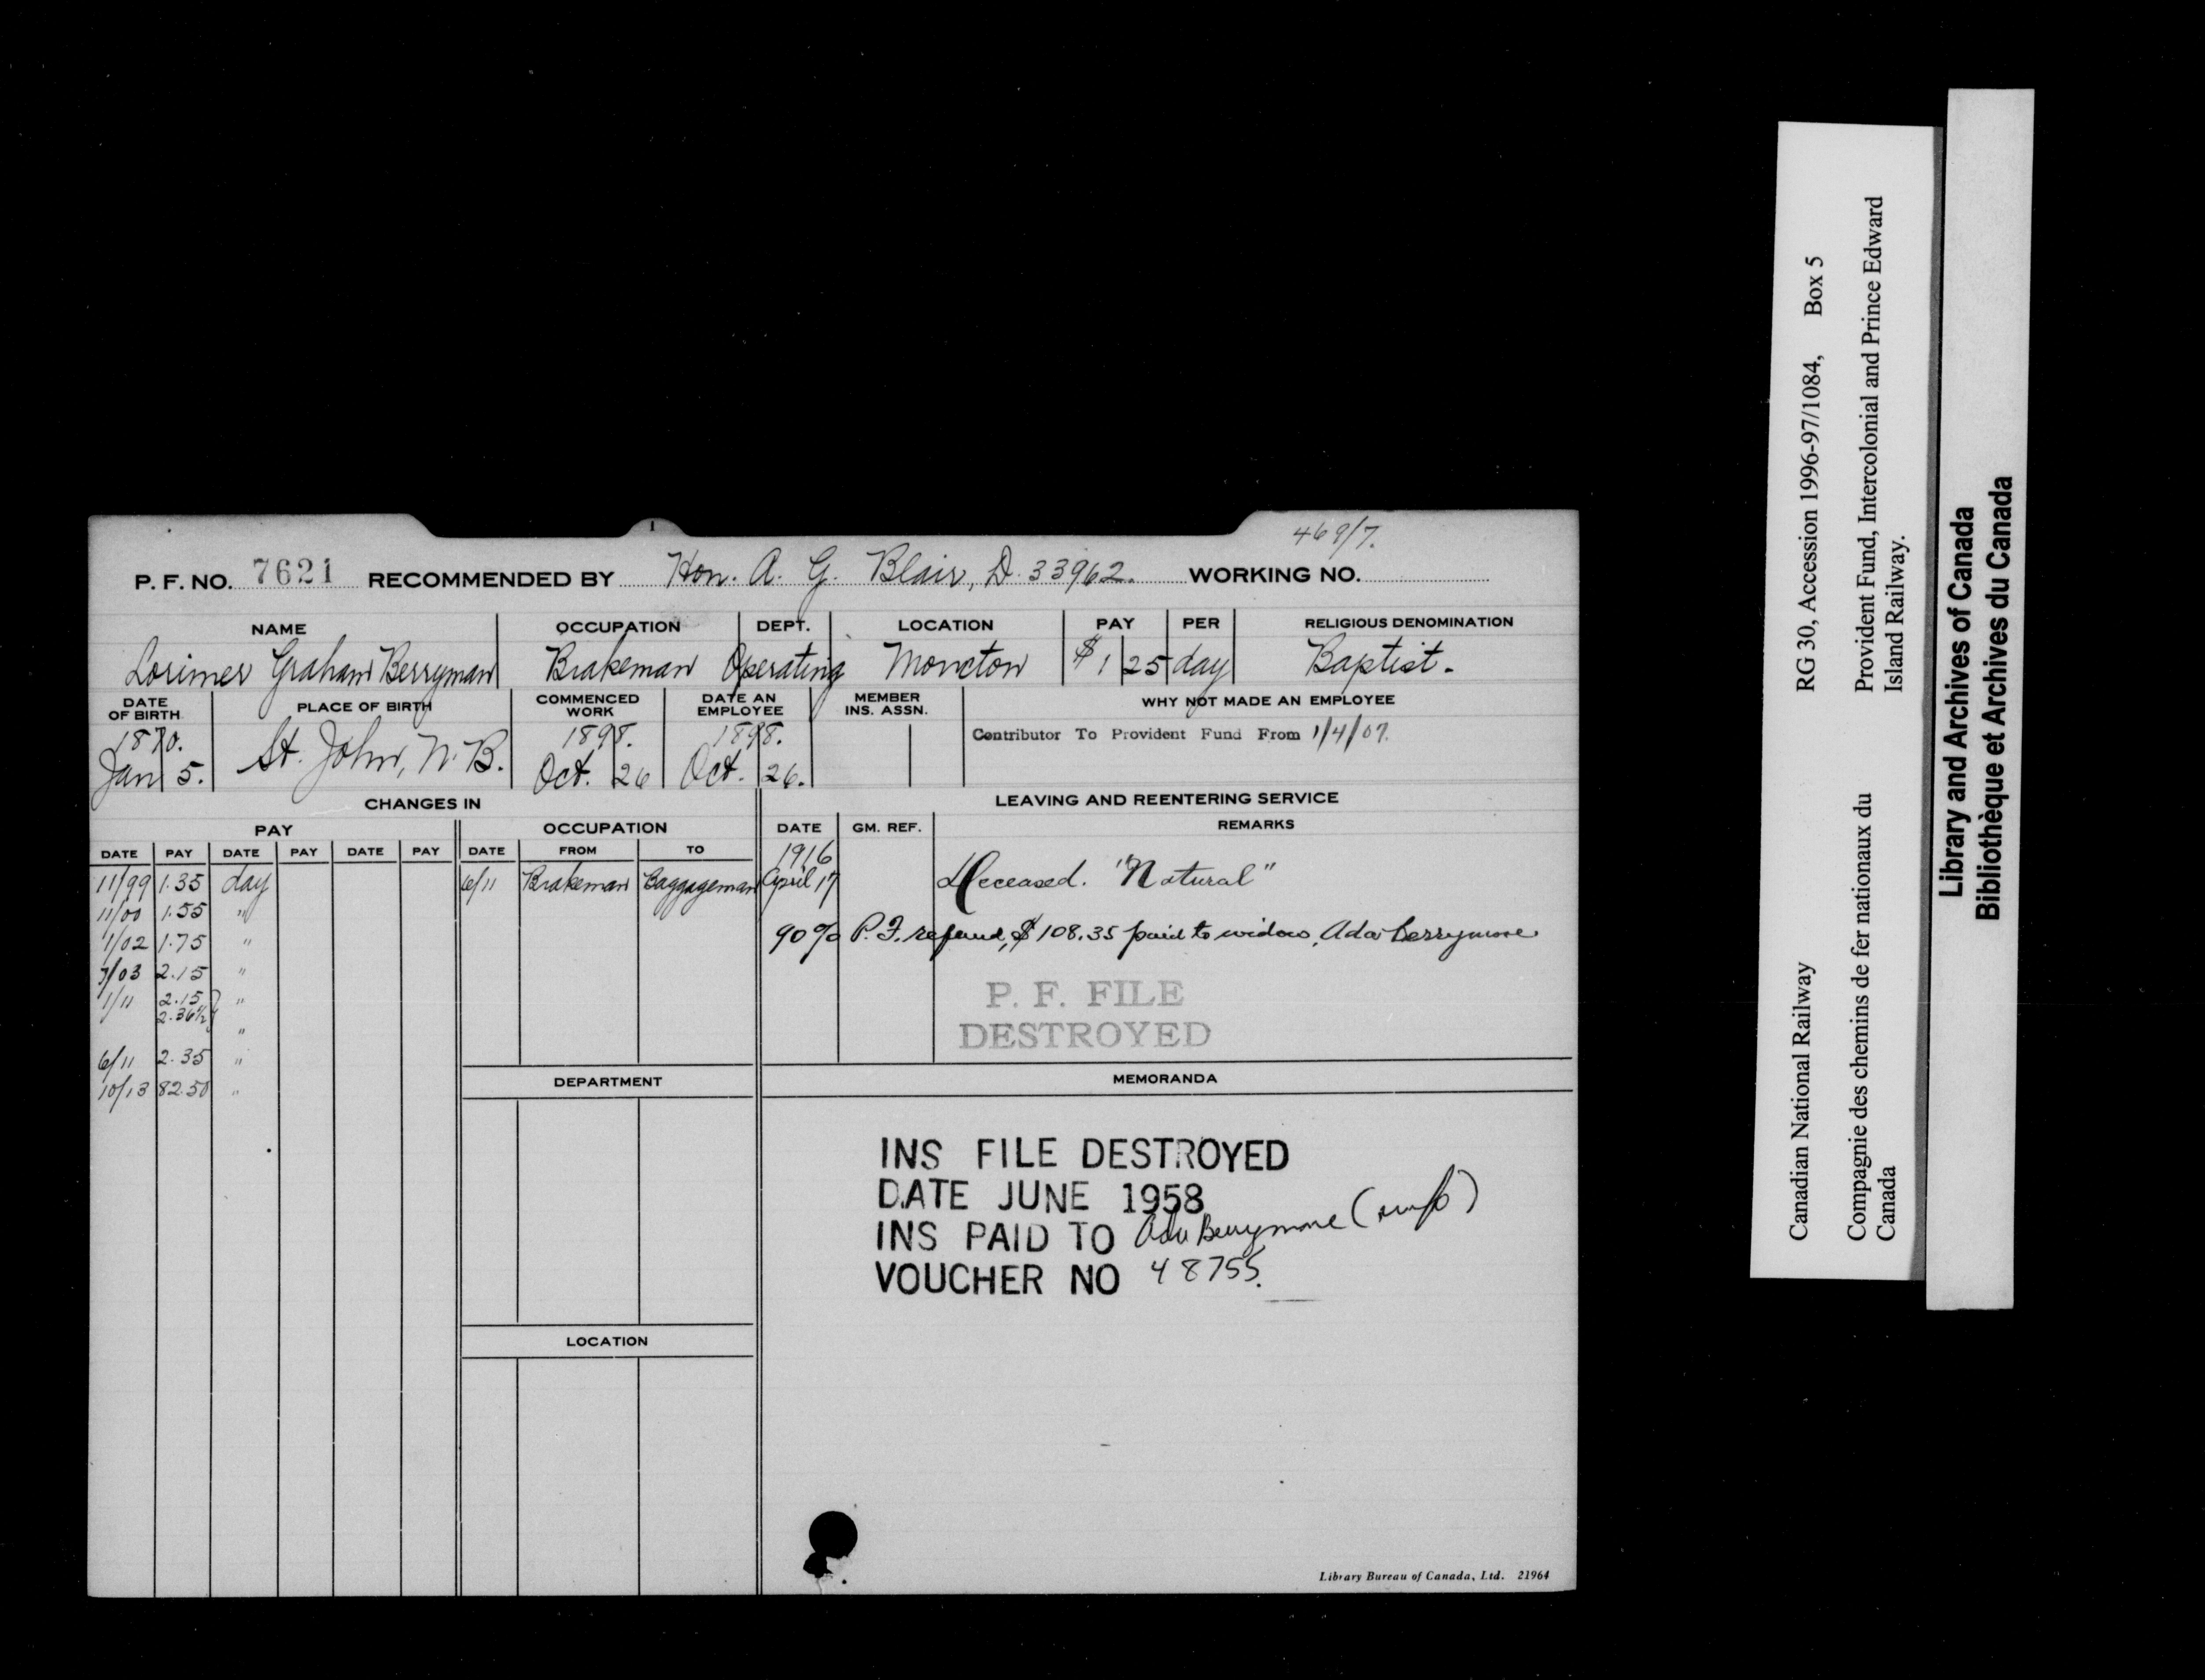 469/7.
P. F. NO. 7621 RECOMMENDED BY Hon. A. G. Blair, D. 33962. WORKING NO.
NAME OCCUPATION DEPT. LOCATION PAY PER RELIGIOUS DENOMINATION
Lorimer Graham Berryman Brakeman Operating Moncton $1 25 day Baptist.
DATE OF BIRTH PLACE OF BIRTH COMMENCED WORK DATE AN EMPLOYEE MEMBER INS. ASSN. WHY NOT MADE AN EMPLOYEE
1870. 1898. 1898. Contributor To Provident Fund From 1/4/07.
Jan 5. St. John, N. B. Oct. 26 Oct. 26.
CHANGES IN LEAVING AND REENTERING SERVICE
PAY OCCUPATION DATE GM. REF. REMARKS
DATE PAY DATE PAY DATE PAY DATE FROM TO
1916
11/99 1.35 day 6/11 Brakeman Baggageman April 17 Deceased. "Natural"
11/00 1.55 "
1/02 1.75 " 90% P. F. refund, $108.35 paid to widow, Ada Berrymore
7/03 2.15 "
1/11 2.15 "
2.36½ "
6/11 2.35 "
10/13 82.50 "
P. F. FILE
DESTROYED
DEPARTMENT MEMORANDA
INS FILE DESTROYED
DATE JUNE 1958
INS PAID TO Ada Berrymore (wife)
VOUCHER NO 48755.
LOCATION
Library Bureau of Canada, Ltd. 21964
Canadian National Railway RG 30, Accession 1996-97/1084, Box 5
Compagnie des chemins de fer nationaux du Provident Fund, Intercolonial and Prince Edward
Canada Island Railway.
Library and Archives of Canada
Bibliothèque et Archives du Canada